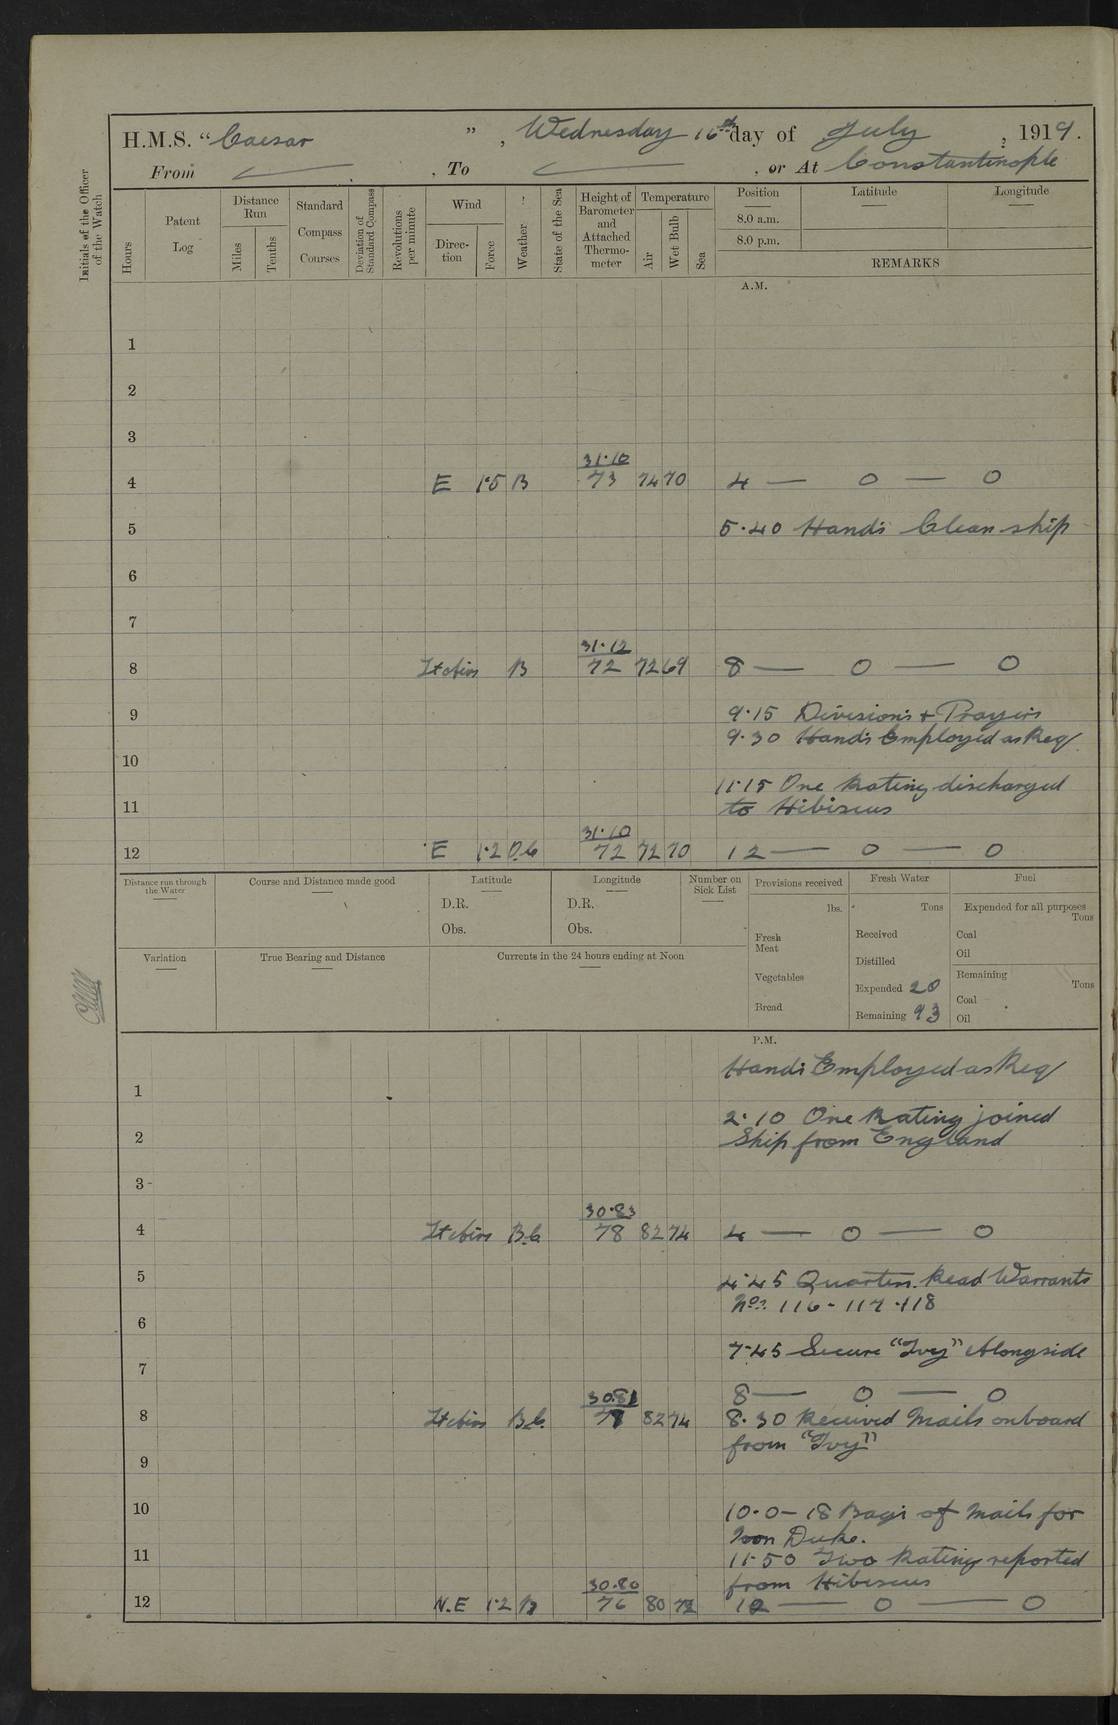 H.M.S. “Caesar ”, Wednesday 16th day of July, 1919.
From — , To — , or At Constantinople
Initials of the Officer of the Watch
Hours
Patent Log
Distance Run
Miles
Tenths
Standard Compass Courses
Deviation of Standard Compass
Revolutions per minute
Wind
Direction
Force
Weather
State of the Sea
Height of Barometer and Attached Thermometer
Temperature
Air
Wet Bulb
Sea
Position Latitude Longitude
8.0 a.m.
8.0 p.m.
REMARKS
A.M.
1
2
3
31·10
4 E 1·5 B 73 74 70 4 — 0 — 0
5 5·40 Hands Clean ship
6
7
31·12
8 Lt airs B 72 72 69 8 — 0 — 0
9 9·15 Divisions + Prayers
9·30 Hands Employed as Req
10
11·15 One Rating discharged
11 to Hibiscus
31·10
12 E 1·2 B.C 72 72 70 12 — 0 — 0
Distance run through the Water
Course and Distance made good
Latitude
D.R.
Obs.
Longitude
D.R.
Obs.
Number on Sick List
Provisions received
lbs.
Fresh Meat
Vegetables
Bread
Fresh Water
Tons
Received
Distilled
Expended 20
Remaining 93
Fuel
Expended for all purposes
Tons
Coal
Oil
Remaining
Tons
Coal
Oil
Variation
True Bearing and Distance
Currents in the 24 hours ending at Noon
P.M.
Hands Employed as Req
1
2·10 One Rating joined
2 Ship from England
3
30·83
4 Lt airs B.C 78 82 74 4 — 0 — 0
5 4·45 Quarters. Read Warrants
Nos. 116 - 117 · 118
6
7·45 Secure “Ivy” Alongside
7
8 — 0 — 0
30.81
8 Lt airs B.C. 78 82 74 8·30 Received Mails onboard
from “Ivy”
9
10 10·0 – 18 Bags of Mails for
Iron Duke.
11 11·50 Two Ratings reported
from Hibiscus
30·80
12 N.E 1·2 B 76 80 72 12 — 0 — 0